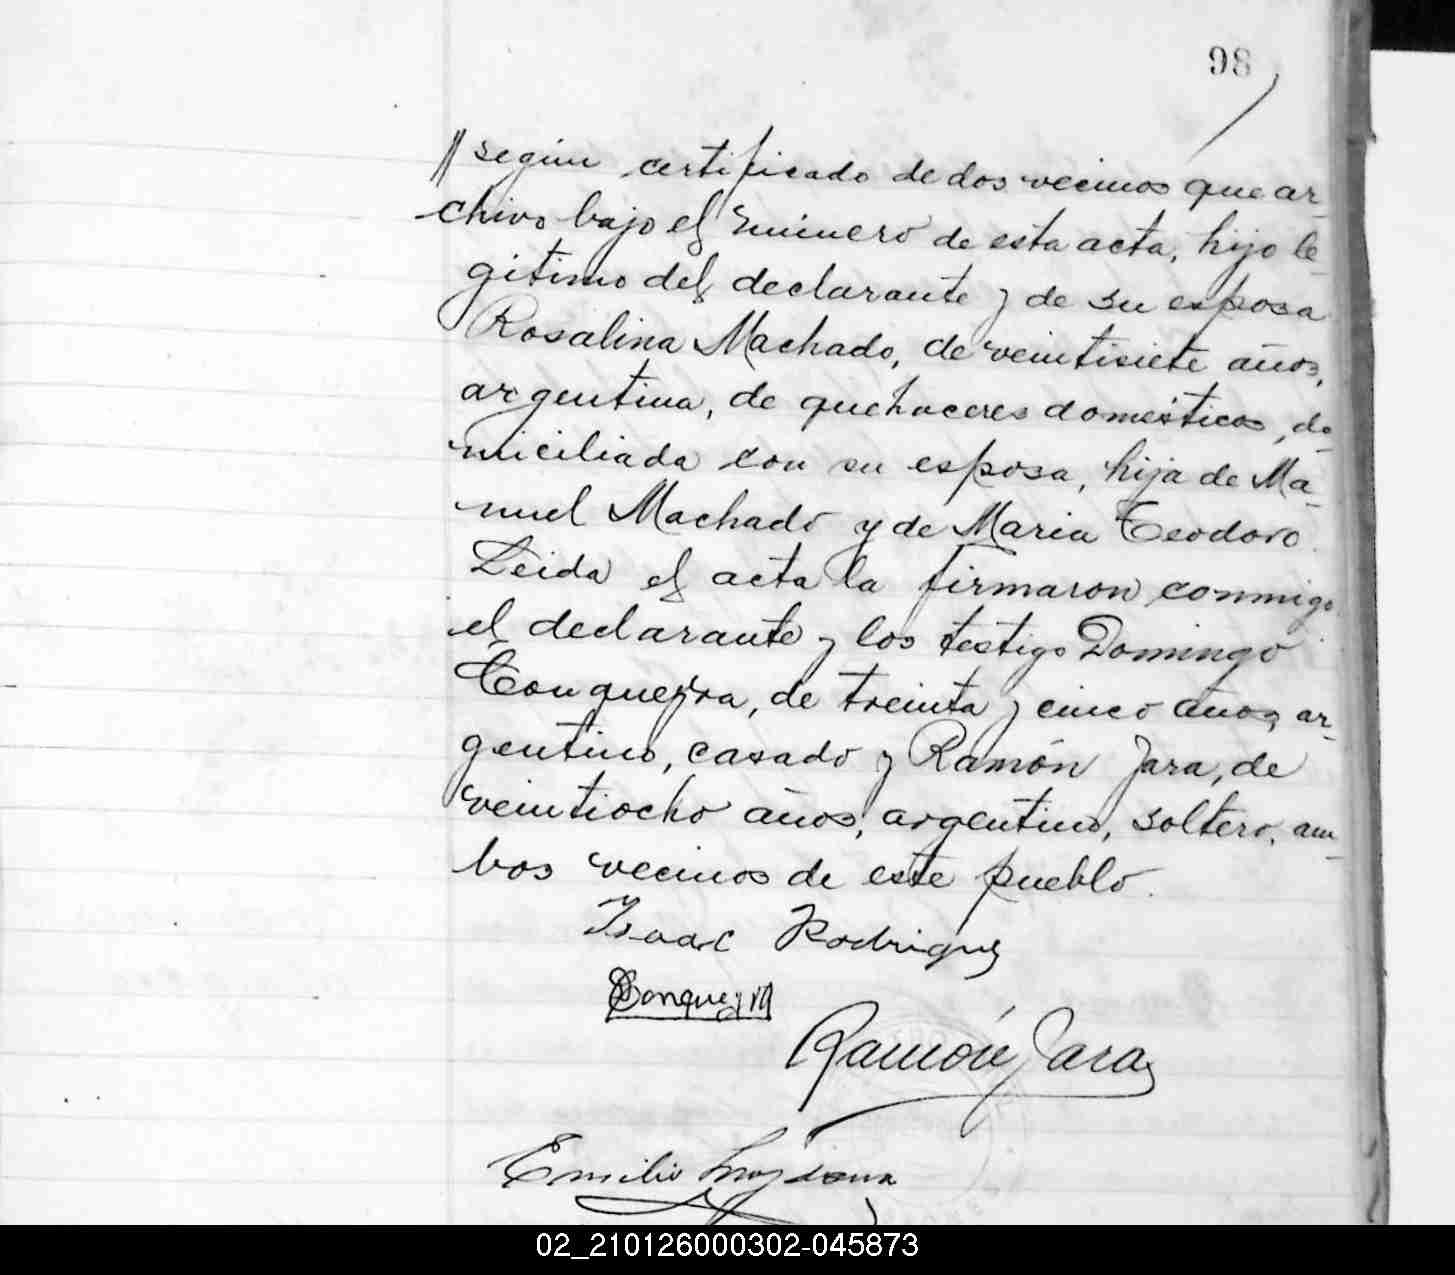 98
// según certificado de dos vecinos que ar-
chivo bajo el número de esta acta, hijo le-
gitimo del declarante y de su esposa
Rosalina Machado, de veintisiete años,
argentina, de quehaceres domésticos, do-
miciliada con su esposa, hija de Ma-
nuel Machado y de Maria Teodoro.
Leida el acta la firmaron conmigo
el declarante y los testigo Domingo
Conqueyra, de treinta y cinco años, ar-
gentino, casado y Ramón Jara, de
veintiocho años, argentino, soltero, am-
bos vecinos de este pueblo.
Isaac Rodriguez
Ramón Jara
Emilio
02_210126000302-045873